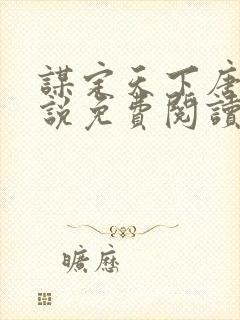 謀定天下唐
說免費閱讀
曠歷